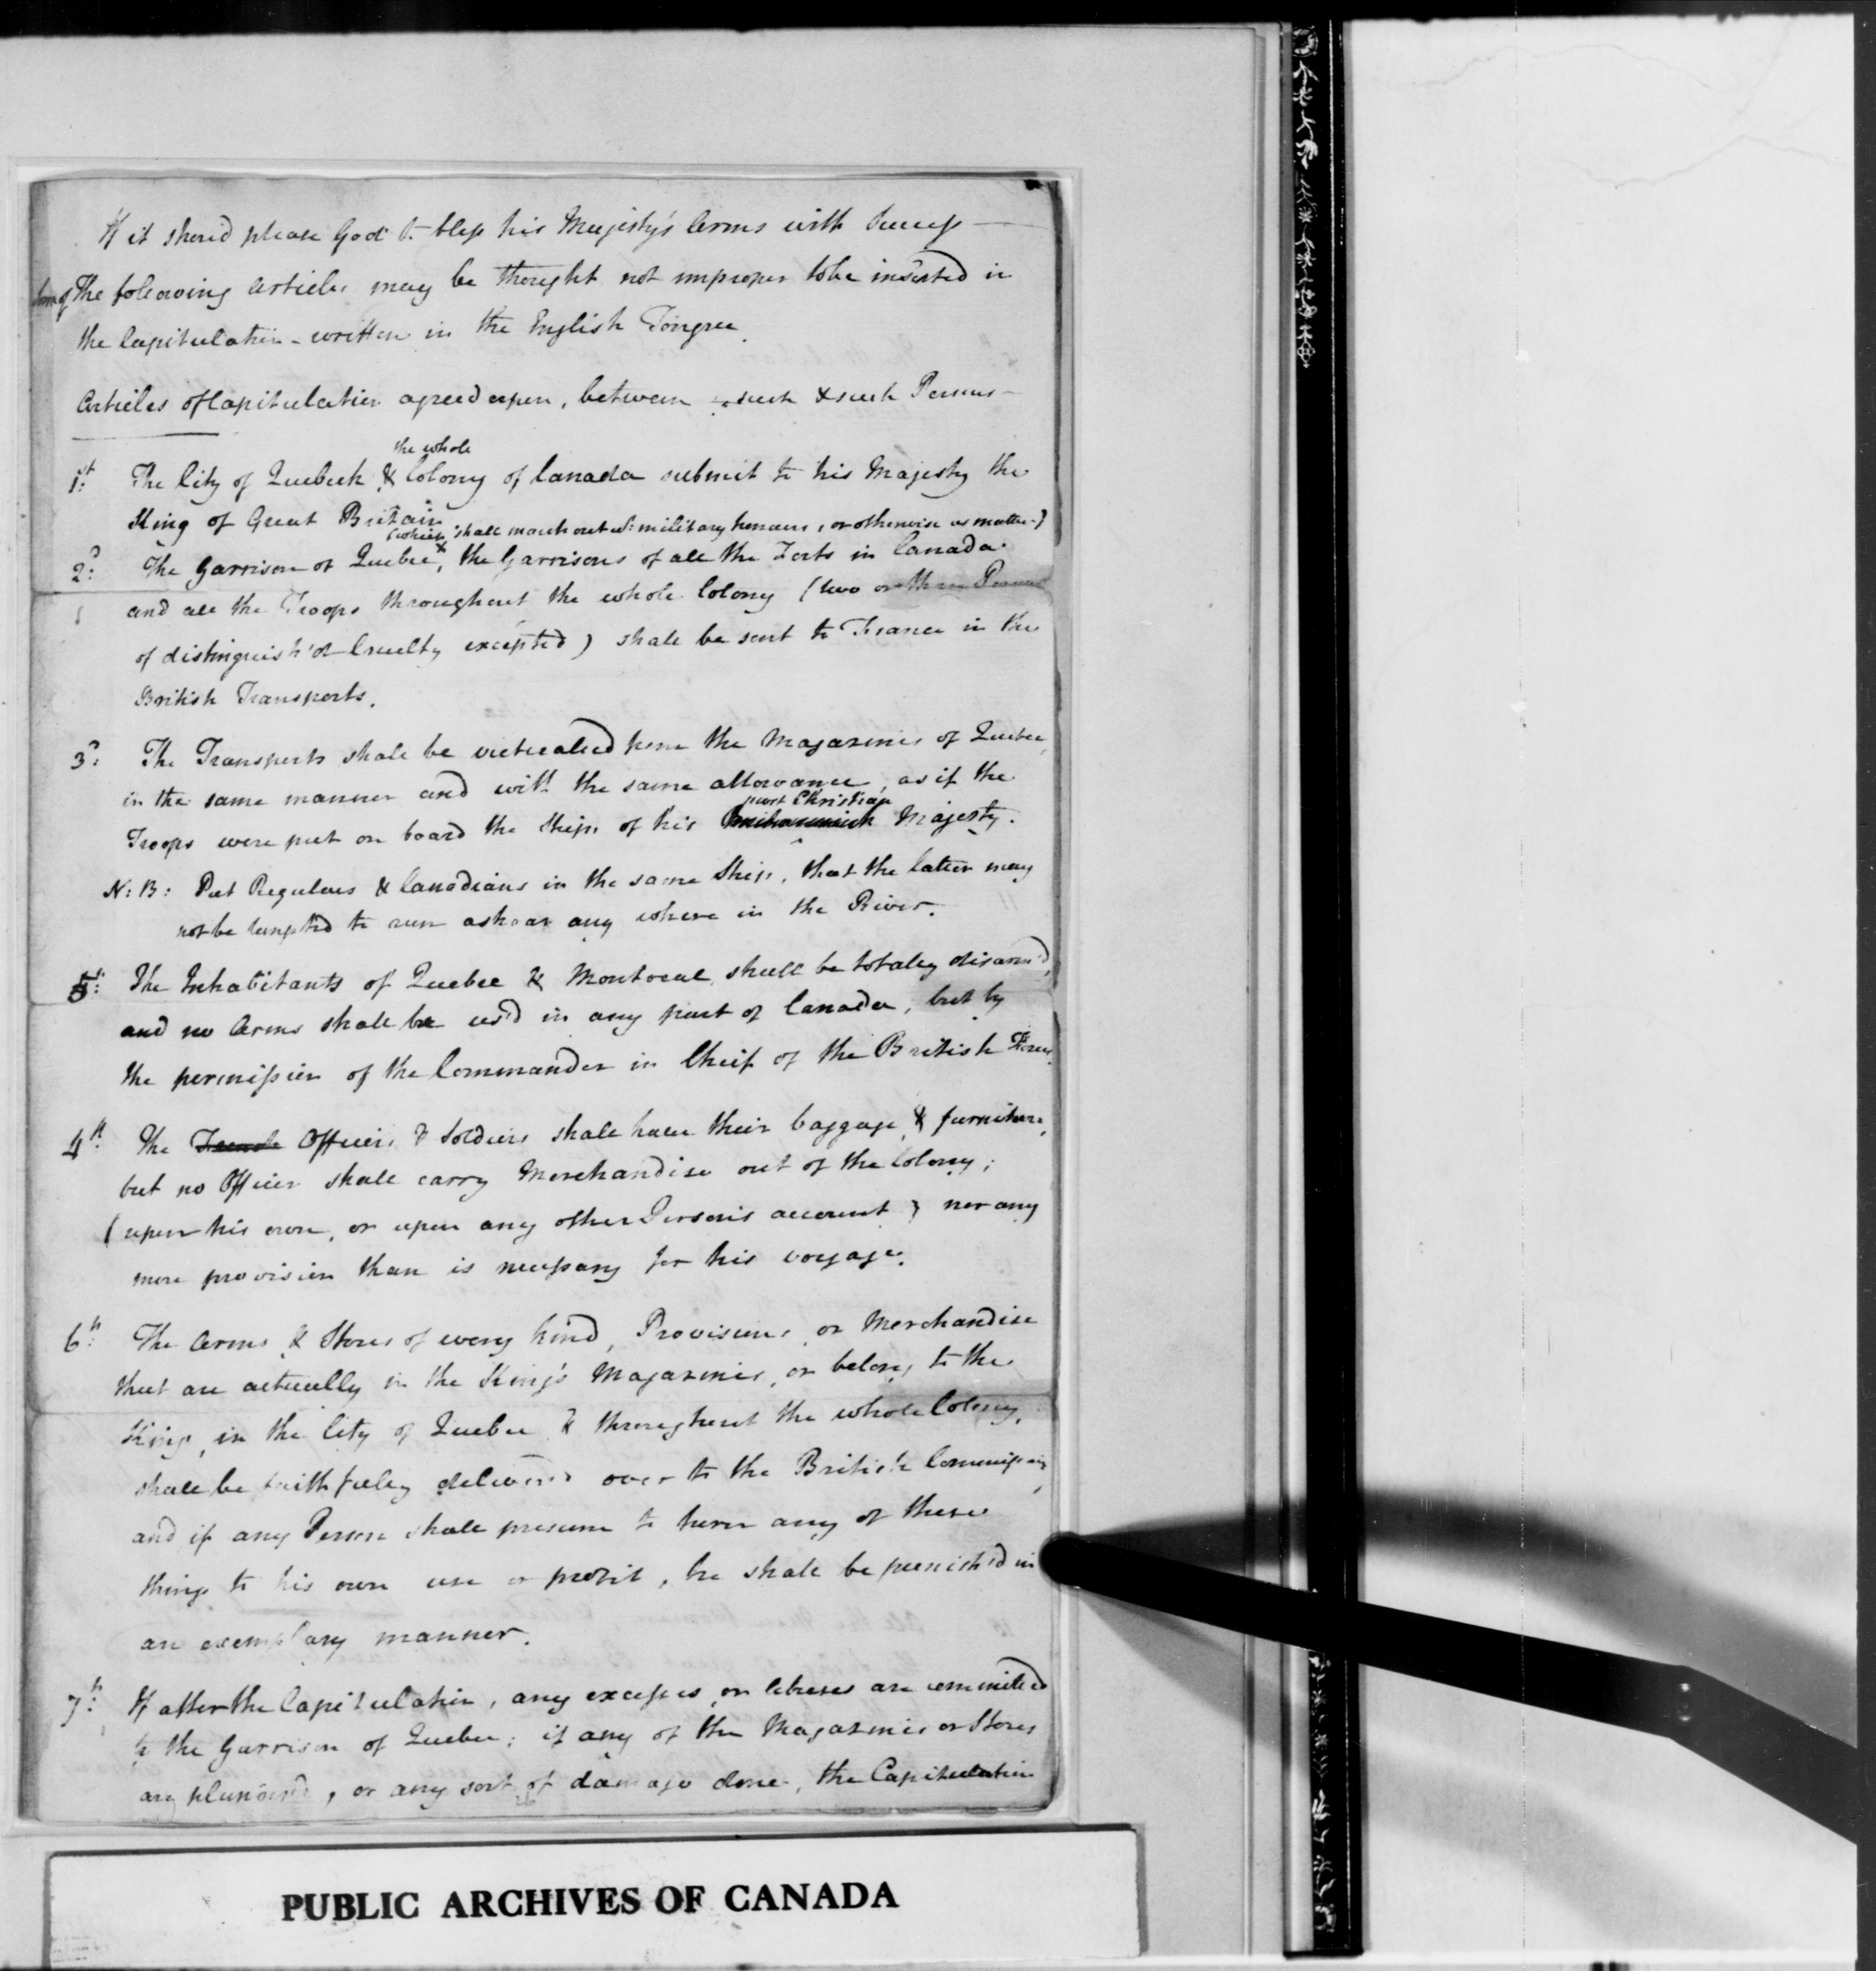 If it should please God to bless his Majesty's Arms with Success —
some of The following Articles may be thought not improper to be inserted in
the Capitulation - written in the English Tongue.
Articles of Capitulation agreed upon, between such & such Persons —
the whole
1st The City of Quebeck & Colony of Canada submit to his Majesty the
King of Great Britain
(which shall march out wt: military honours, or otherwise as matter.)
2d: The Garrison of Quebec, the Garrisons of all the Forts in Canada
and all the Troops throughout the whole Colony (two or three Persons
of distinguish'd Cruelty excepted) shall be sent to France in the
British Transports.
3d: The Transports shall be victualled from the Magazines of Quebec,
in the same manner and with the same allowance, as if the
most Christian
Troops were put on board the Ships of his Majesty.
N: B: Put Regulars & Canadians in the same Ship, that the latter may
not be tempted to run ashoar any where in the River.
5: The Inhabitants of Quebec & Montreal shall be totaly disarm'd,
and no Arms shall be us'd in any part of Canada, but by
the permission of the Commander in Cheif of the British Forces.
4th: The French Officers & Soldiers shall have their baggage & furniture,
but no Officer shall carry Merchandise out of the Colony;
(upon his own, or upon any other Person's account) nor any
more provision than is necessary for his voyage.
6th: The Arms & Stores of every kind, Provisions, or Merchandise
that are actually in the King's Magazines, or belong to the
King, in the City of Quebec & throughout the whole Colony,
shall be faithfully deliver'd over to the British Commissary,
and if any Person shall presume to turn any of these
things to his own use or profit, he shall be punish'd in
an exemplary manner.
7th: If after the Capitulation, any excesses or abuses are committed
to the Garrison of Quebec; if any of the Magazines or Stores
are plunder'd, or any sort of damage done, the Capitulation
PUBLIC ARCHIVES OF CANADA